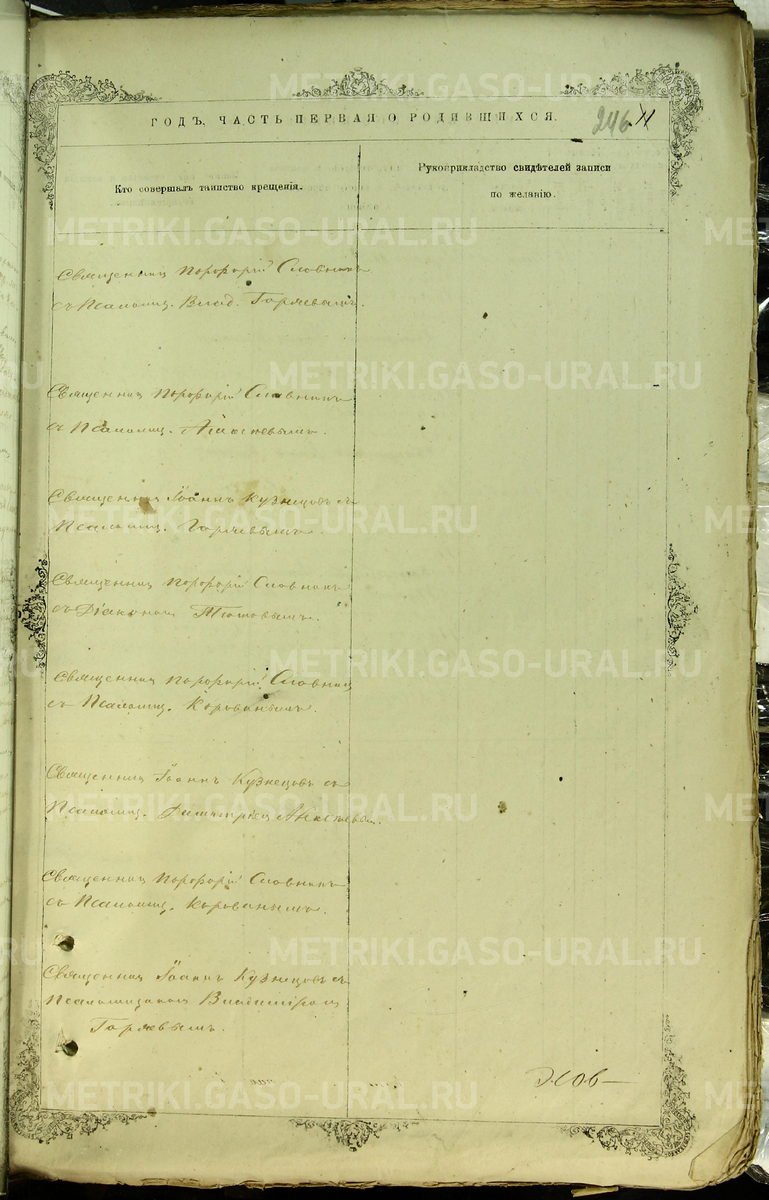 ГОДЪ, ЧАСТЬ ПЕРВАЯ О РОДИВШИХСЯ.
246
Кто совершалъ таинство крещенія.
Рукоприкладство свидѣтелей записи
по желанію.
Священник Порфирій Словцовъ
съ Псаломщ. Влад. Горяевымъ.
Священник Порфирій
съ Псаломщ.
Священник Іоаннъ Кузнецовъ съ
Псаломщ. Горяевымъ.
Священник Порфирій
съ Діаконом
Священник Порфирій
съ Псаломщ. Корованымъ.
Священник Іоаннъ Кузнецовъ съ
Псаломщ. Димитріем
Священник Порфирій
съ Псаломщ. Корованымъ.
Священник Іоаннъ Кузнецовъ съ
Псаломщиком Владиміром
Горяевымъ.
METRIKI.GASO-URAL.RU